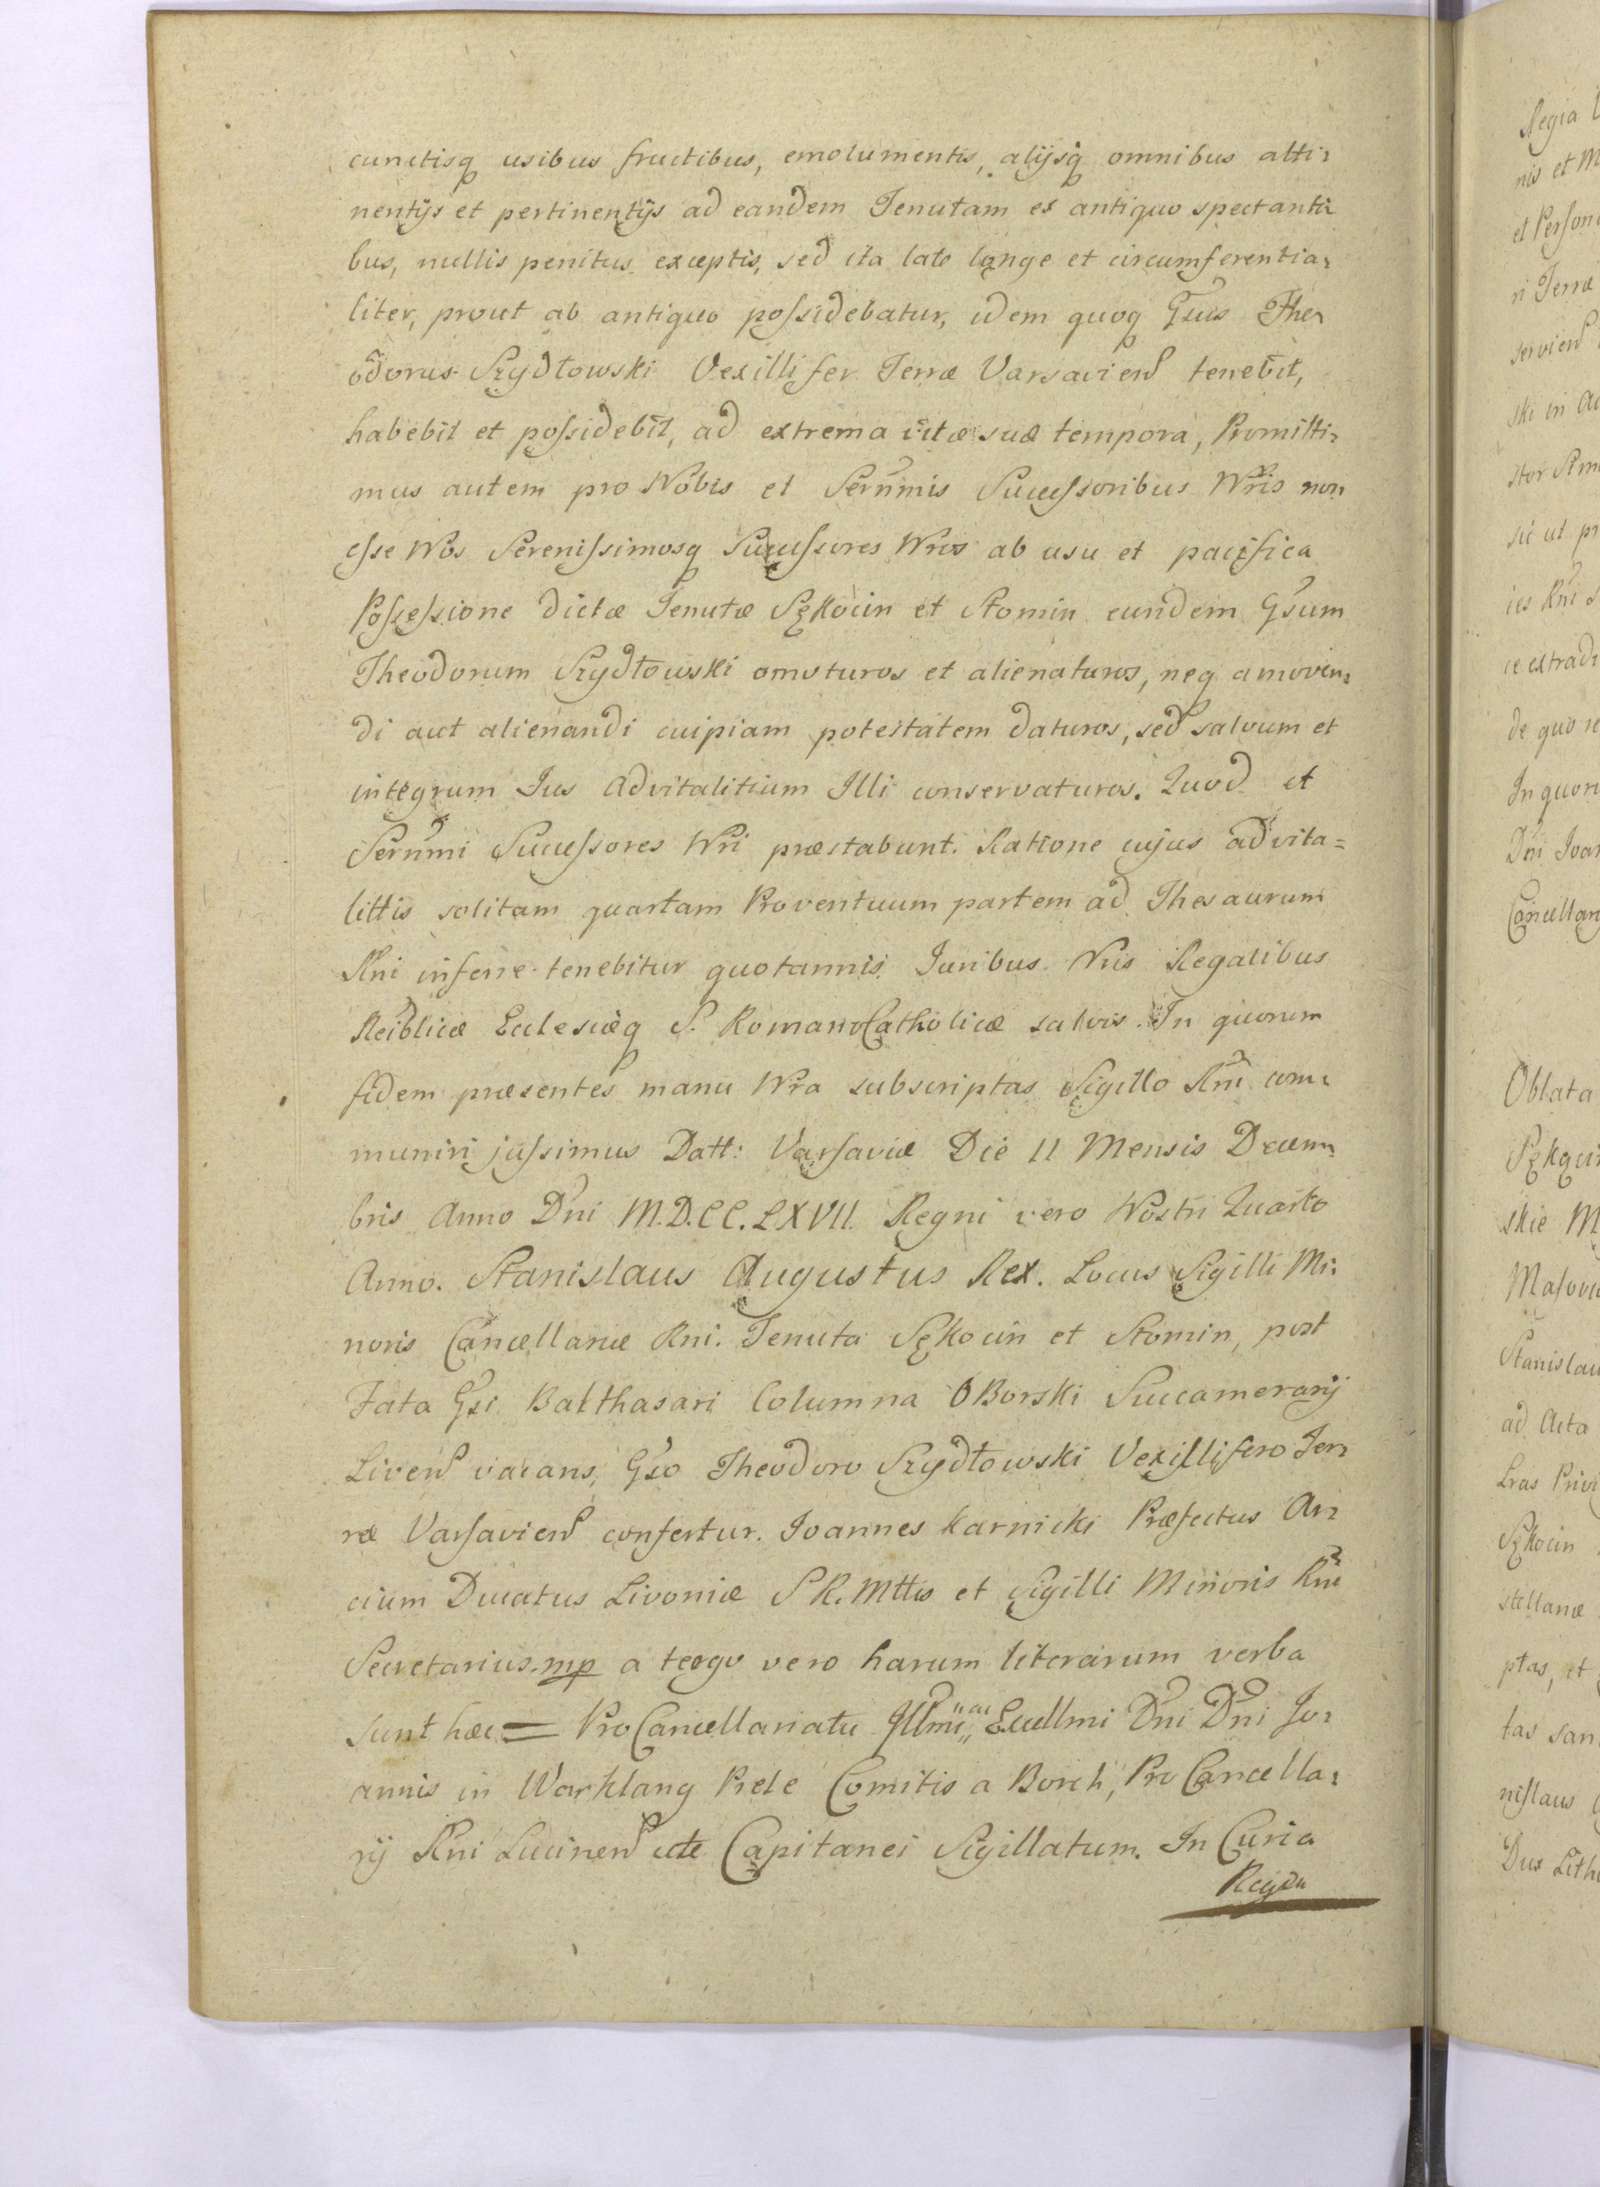 cunctisq usibus fructibus, emolumentis, alijsq omnibus atti=
nentijs et pertinentijs ad eandem Tenutam ex antiquo spectanti
bus, nullis penitus exceptis, sed ita late longe et circumferentia=
liter, prout ab antiquo possidebatur, idem quoq Gsus The=
odorus Szydłowski Vexillifer Terræ Varsavien tenebit,
habebit et possidebit, ad extrema vitæ suæ tempora, Promitti=
mus autem pro Nobis et Serenmis Successoribus Nris non
esse Nos Serenissimosq Successores Nros ab usu et pacifica
Possessione dictæ Tenutæ Sękocin et Słomin eundem Gsum
Theodorum Szydłowski amoturos et alienaturos, neq amoven=
di aut alienandi cuipiam potestatem daturos, sed salvum et
integrum Jus advitalitium Illi conservaturos. Quod et
Serenmi Successores Nri præstabunt. Ratione cujus advita=
littis solitam quartam Proventuum partem ad Thesaurum
Rni inferre tenebitur quotannis Juribus Nris Regalibus
Reiblicæ Ecclesiæq S. Romano Catholicæ salvis. In quorum
fidem præsentes manu Nra subscriptas Sigillo Rni com=
muniri jussimus Datt: Varsaviæ Die 11 Mensis Decem=
bris Anno Dni M.D.CC.LXVII. Regni vero Nostri Quarto
Anno. Stanislaus Augustus Rex. Locus Sigilli Mi=
noris Cancellariæ Rni. Tenuta Sękocin et Słomin, post
Fata Gsi Balthasari Columna OBorski Succamerarij
Liven vacans, Gso Theodoro Szydłowski Vexillifero Ter=
ræ Varsavien confertur. Joannes Karnicki Præfectus Ar=
cium Ducatus Livoniæ S R. Mttis et Sigilli Minoris Rni
Secretarius mp a tergo vero harum literarum verba
sunt hæc = ProCancellariatu Illmi ac Excellmi Dni Dni Jo=
annis in Warklang Prele Comitis a Borch, Pro Cancella=
rij Rni Lucinen etc Capitanei Sigillatum. In Curia
Regia
Regia
nis et M
et Person
ri Terræ
servien
ski in
sic ut pr
ies Rni
de quo
In quor
Dni Joan
Cancellar
Oblata
skie M
Masovi
Stanislau
ad Acta
Lras Privi
Sękocin
ptas, et
tas san
nislaus
Dux Lith